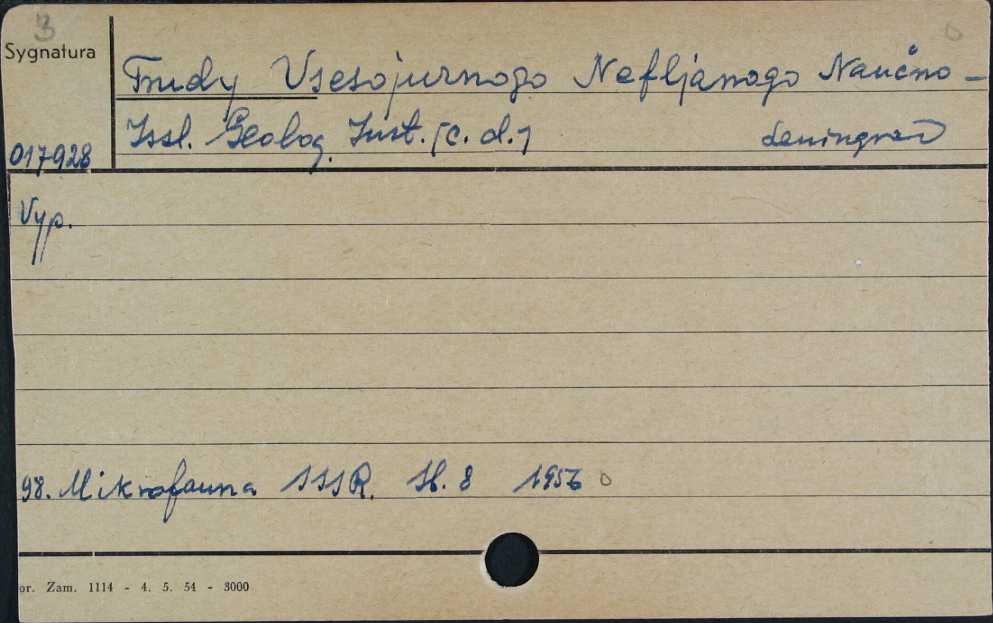 3
Sygnatura
Trudy Vsesojuznogo Neftjanogo Naučno-
Issl. Geolog. Inst. [c. d.]   Leningrad
017928
Vyp.
98. Mikrofauna SSSR. Sb. 8 1956
or. Zam. 1114 - 4. 5. 54 - 3000